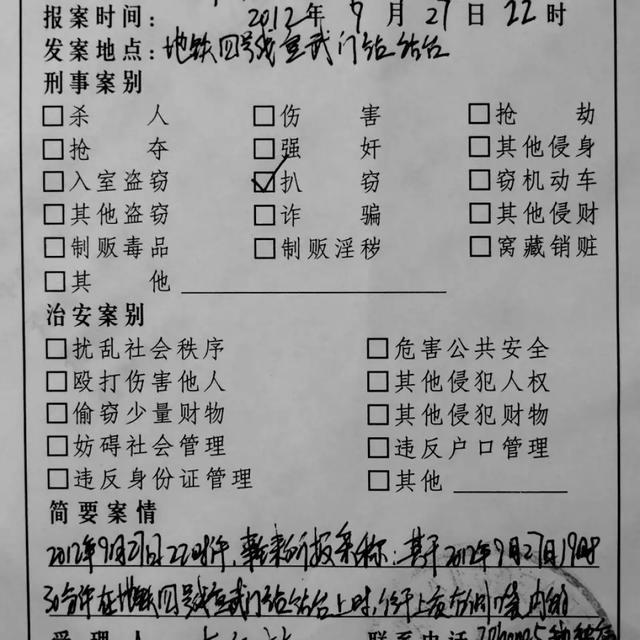 报案时间： 2012年9月27日22时
发案地点：地铁四号线宣武门站站台
刑事案别
□杀 人 □伤 害 □抢 劫
□抢 夺 □强 奸 □其他侵身
□入室盗窃 ☑扒 窃 □窃机动车
□其他盗窃 □诈 骗 □其他侵财
□制贩毒品 □制贩淫秽 □窝藏销赃
□其 他
治安案别
□扰乱社会秩序 □危害公共安全
□殴打伤害他人 □其他侵犯人权
□偷窃少量财物 □其他侵犯财物
□妨碍社会管理 □违反户口管理
□违反身份证管理 □其他
简要案情
2012年9月27日22时许，来所报案称：其于2012年9月27日19时
30分许在地铁四号线宣武门站站台上时，
受 理 人 联系电话